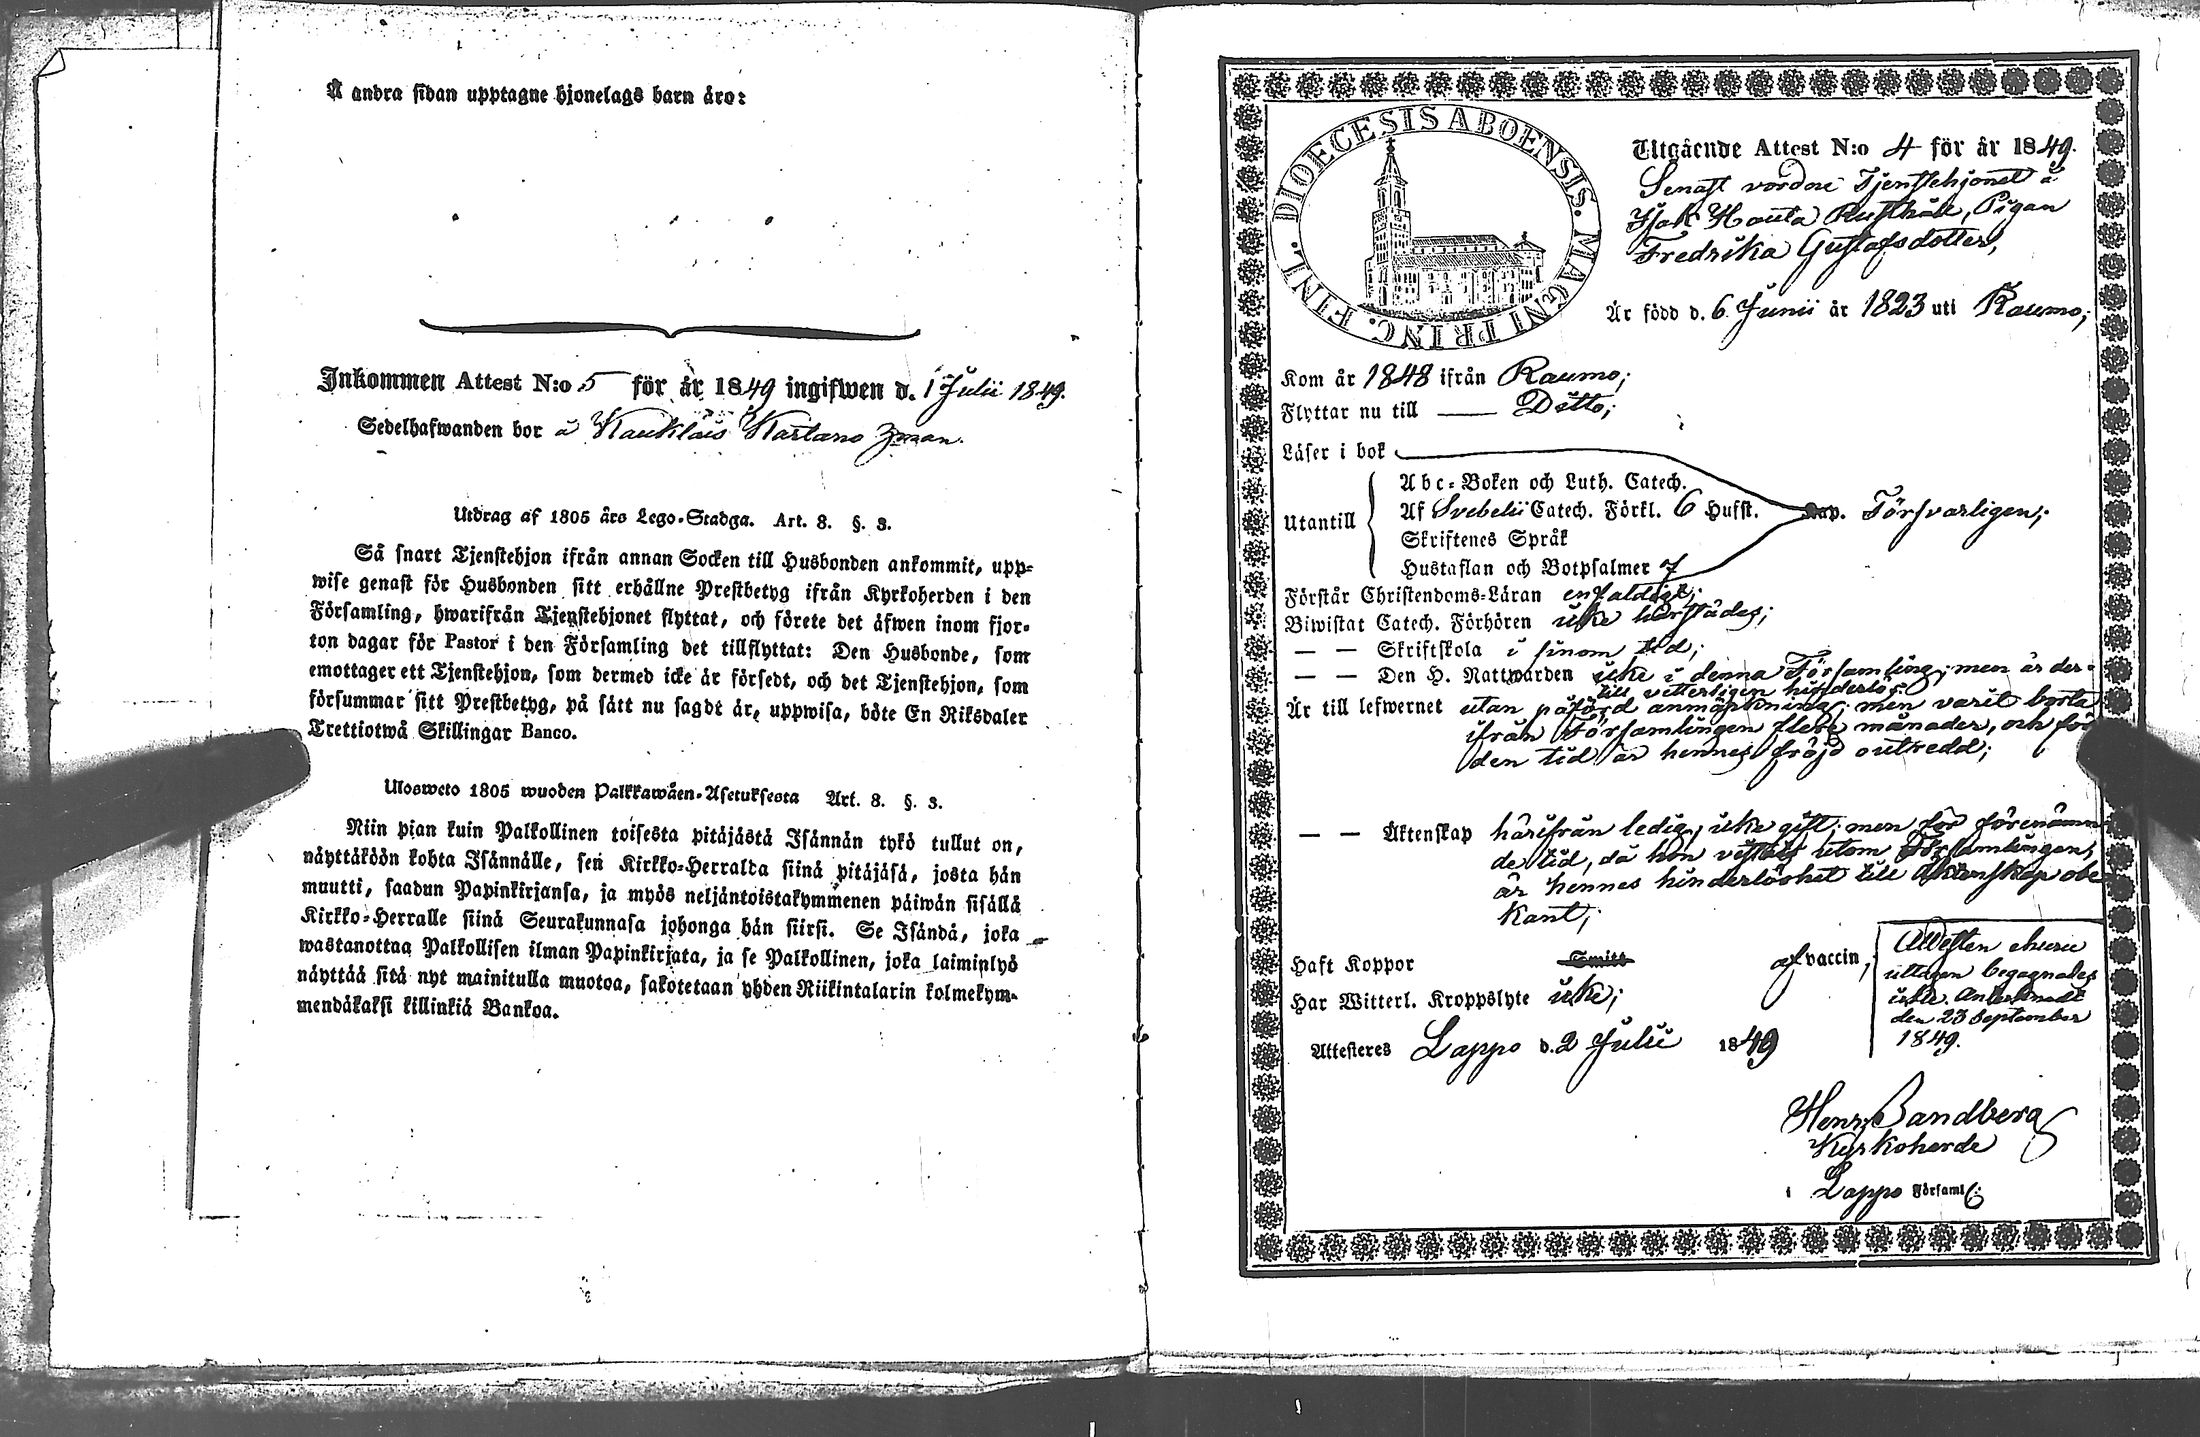 Å andra sidan upptagne hjonelags barn äro:
Inkommen Attest N:o 5 för år 1849 ingifwen d. 1 Julii 1849.
Sedelhafwanden bor å Kauklais Kartano
Utdrag af 1805 års Lego-Stadga. Art. 8. §. 3.
Så snart Tjenstehjon ifrån annan Socken till Husbonden ankommit, upp-
wise genast för Husbonden sitt erhållne Prestbetyg ifrån Kyrkoherden i den
Församling, hwarifrån Tjenstehjonet flyttat, och förete det äfwen inom fjor-
ton dagar för Pastor i den Församling det tillflyttat: Den Husbonde, som
emottager ett Tjenstehjon, som dermed icke är försedt, och det Tjenstehjon, som
försummar sitt Prestbetyg, på sätt nu sagdt är, uppwisa, böte En Riksdaler
Trettiotwå Skillingar Banco.
Ulosweto 1805 wuoden Palkkawäen-Asetuksesta Art. 8. §. 3.
Niin pian kuin Palkollinen toisesta pitäjästä Isännän tykö tullut on,
näyttäköön kohta Isännälle, sen Kirkko-Herralda siinä pitäjäsä, josta hän
muutti, saadun Papinkirjansa, ja myös neljäntoistakymmenen päiwän sisällä
Kirkko-Herralle siinä Seurakunnasa johonga hän siirsi. Se Isändä, joka
wastanottaa Palkollisen ilman Papinkirjata, ja se Palkollinen, joka laiminlyö
näyttää sitä nyt mainitulla muotoa, sakotetaan yhden Riikintalarin kolmekym-
mendäkaksi killinkiä Bankoa.
DIOECESIS ABOENSIS. MAGNI PRINC. FINL.
Utgående Attest N:o 4 för år 1849.
Senast vordne Tjenstehjonet å
Isak Houta Rusthåll, Pigan
Fredrika Gustafsdotter,
Är född d. 6 Junii år 1823 uti Raumo;
Kom år 1848 ifrån Raumo;
Flyttar nu till — Ditto;
Läser i bok
Abc-Boken och Luth. Catech.
Utantill Af Svebelii Catech. Förkl. 6 Hufst. Kap. Försvarligen;
Skriftenes Språk
Hustaflan och Botpsalmer 7
Förstår Christendoms-Läran enfaldigt;
Biwistat Catech. Förhören icke härstädes;
— — Skriftskola i sinom tid;
— — Den H. Nattwarden icke i denna Församling; men är der-
till vetterligen hinderlös.
Är till lefwernet utan påförd anmärkning; men varit borta
ifrån Församlingen flere månader, och för
den tid är hennes fröjd outredd;
— — Äktenskap härifrån ledig, icke gift; men för förenämn-
de tid, då hon vistats utom Församlingen,
är hennes hinderlöshet till Äktenskap obe-
kant;
Haft Koppor Smitt af vaccin,
Har Witterl. Kroppslyte icke;
Attesten ehuru
uttagen begagnades
icke. Antecknadt
den 23 September
1849.
Attesteres Lappo d. 2 Julii 1849
Henr. Sandberg
Kyrkoherde
i Lappo Församl: